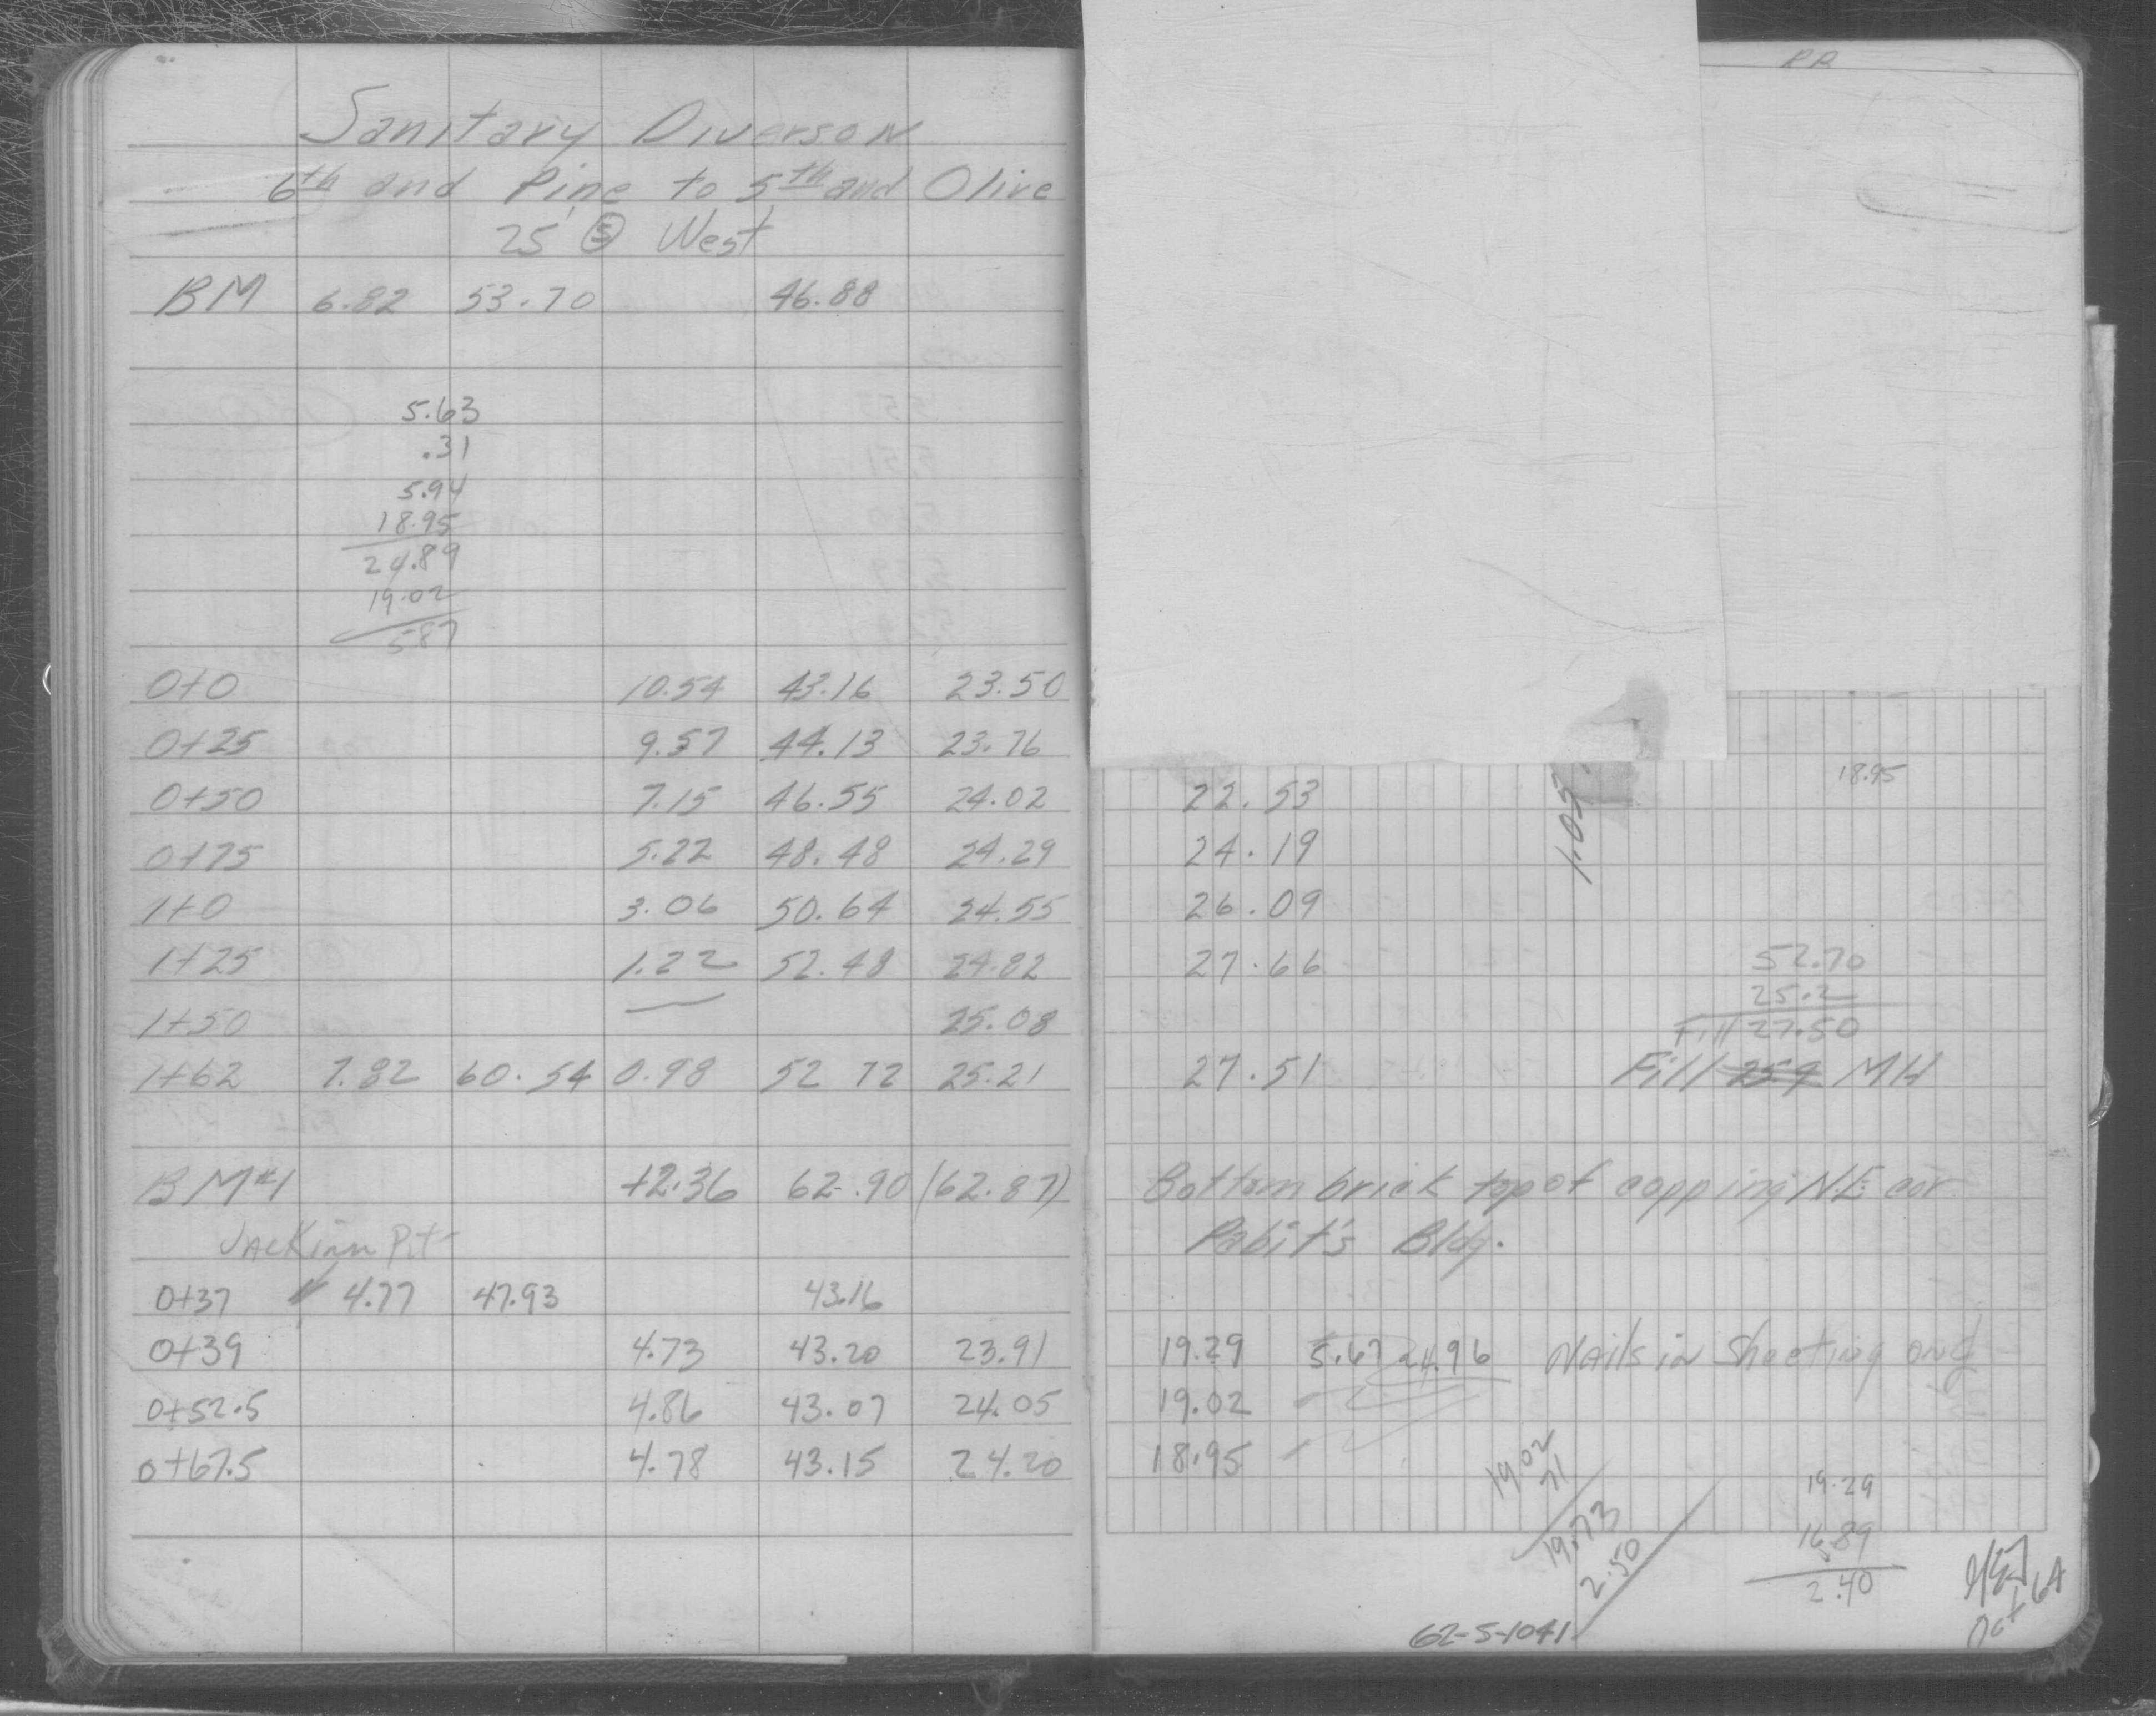 Sanitary Diverson
6th and Pine to 5th and Olive
25' S West
BM 6.82 53.70 46.88
5.63
.31
5.94
18.95
24.89
19.02
5.87
0+0 10.54 43.16 23.50
0+25 9.57 44.13 23.76
0+50 7.15 46.55 24.02
0+75 5.22 48.48 24.29
1+0 3.06 50.64 24.55
1+25 1.22 52.48 24.82
1+50 — 25.08
1+62 7.82 60.54 0.98 52 72 25.21
BM#1 +2.36 62.90 (62.87)
Jacking Pit
0+37 4.77 47.93 43.16
0+39 4.73 43.20 23.91
0+52.5 4.86 43.07 24.05
0+67.5 4.78 43.15 24.20
RR
18.95
22.53
1.05
24.19
26.09
27.66
52.70
25.2
Fill 27.50
27.51 Fill MH
Bottom brick top of copping N.E. cor
Bldg.
19.29 5.67 24.96 Nails in Sheeting
19.02
18.95
19.02
71
19.73
2.50
19.29
16.89
2.40
Oct 64
62-S-1041